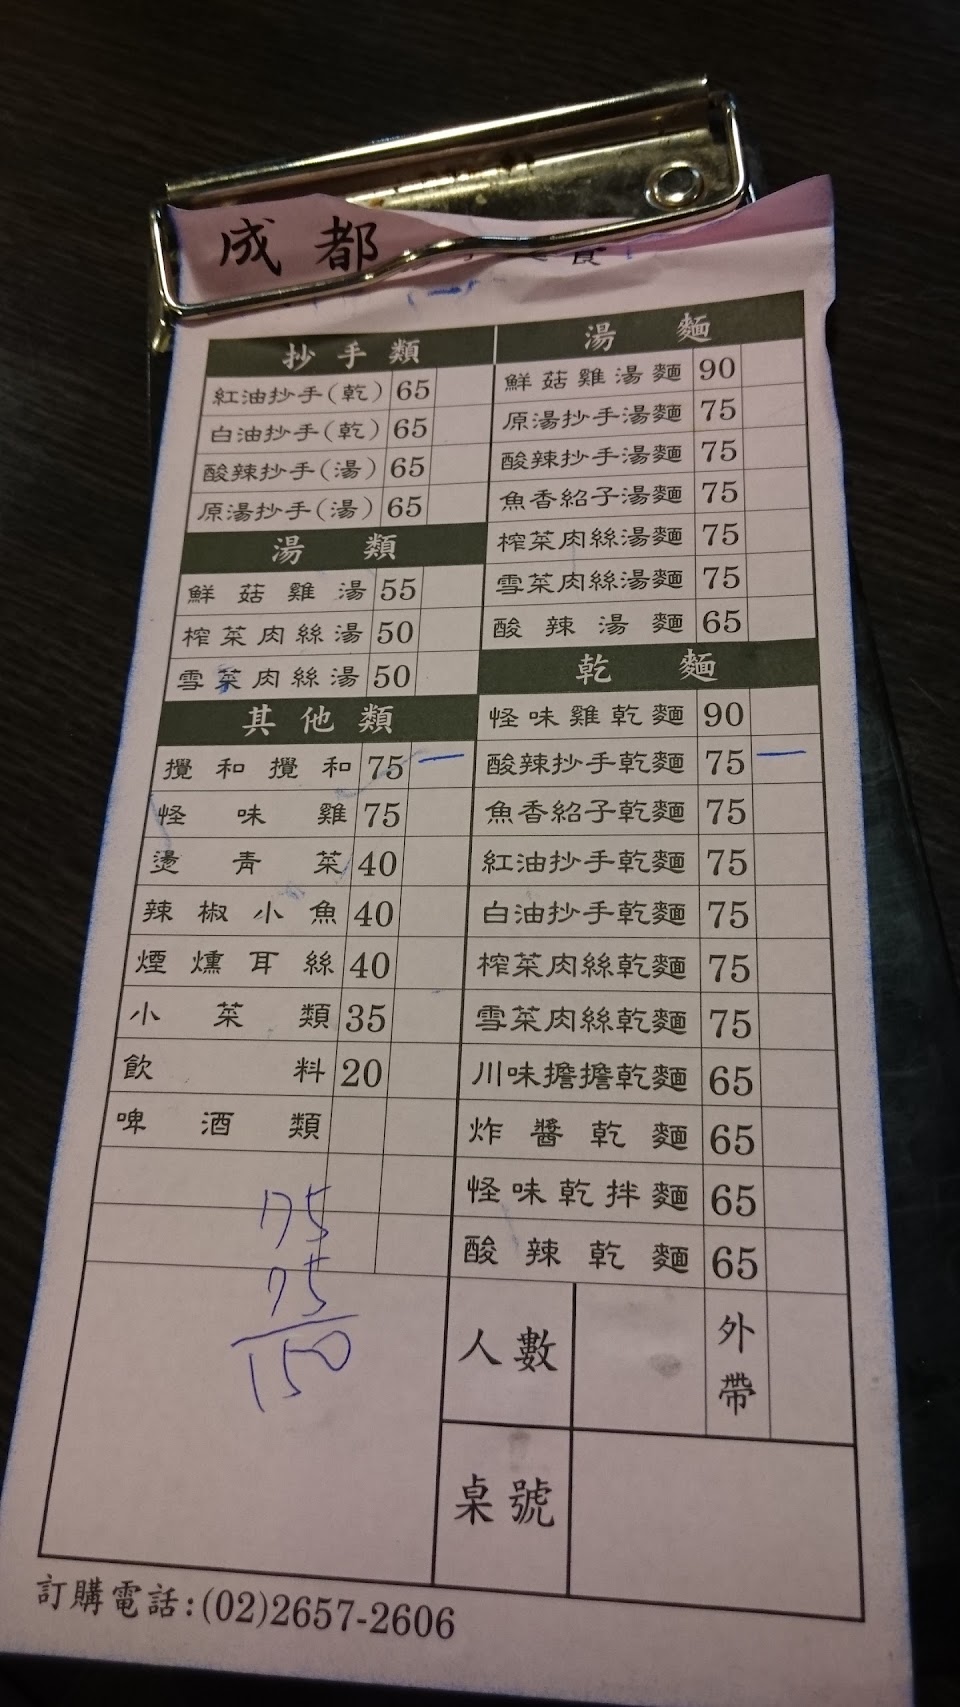 成都
食
抄手類
紅油抄手(乾) 65
白油抄手(乾) 65
酸辣抄手(湯) 65
原湯抄手(湯) 65
湯類
鮮菇雞湯 55
榨菜肉絲湯 50
雪菜肉絲湯 50
其他類
攪和攪和 75 一
怪味雞 75
燙青菜 40
辣椒小魚 40
煙燻耳絲 40
小菜類 35
飲料 20
啤酒類
75
75
150
湯麵
鮮菇雞湯麵 90
原湯抄手湯麵 75
酸辣抄手湯麵 75
魚香紹子湯麵 75
榨菜肉絲湯麵 75
雪菜肉絲湯麵 75
酸辣湯麵 65
乾麵
怪味雞乾麵 90
酸辣抄手乾麵 75 一
魚香紹子乾麵 75
紅油抄手乾麵 75
白油抄手乾麵 75
榨菜肉絲乾麵 75
雪菜肉絲乾麵 75
川味擔擔乾麵 65
炸醬乾麵 65
怪味乾拌麵 65
酸辣乾麵 65
人數
外帶
桌號
訂購電話:(02)2657-2606